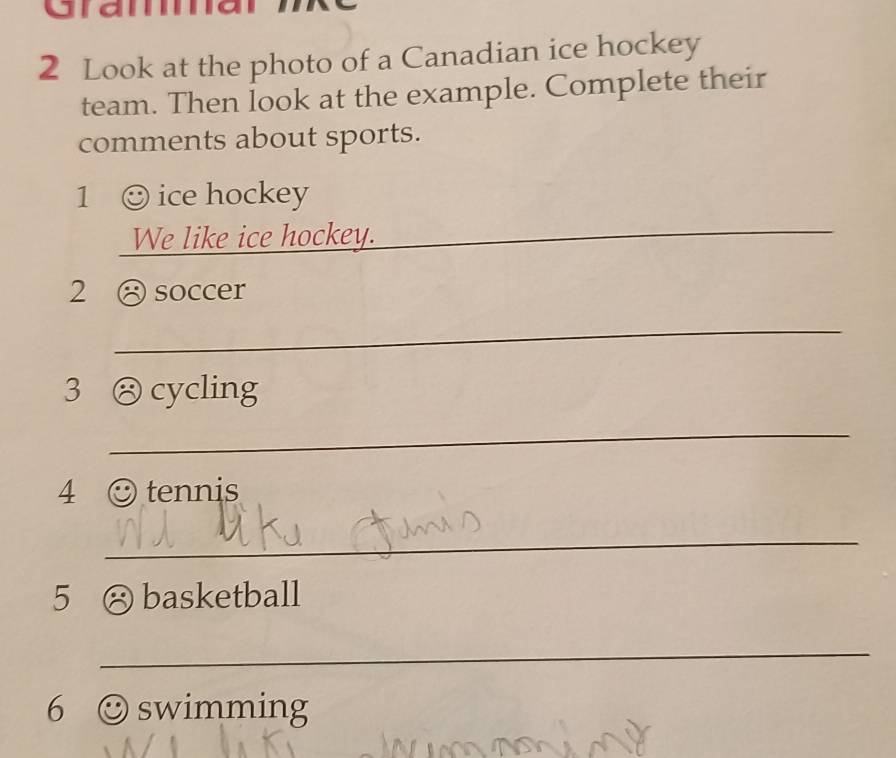 Grammar like
2 Look at the photo of a Canadian ice hockey
team. Then look at the example. Complete their
comments about sports.
1 ☺ ice hockey
We like ice hockey.
2 ☹ soccer
3 ☹ cycling
4 ☺ tennis
We like tennis
5 ☹ basketball
6 ☺ swimming
We like swimming